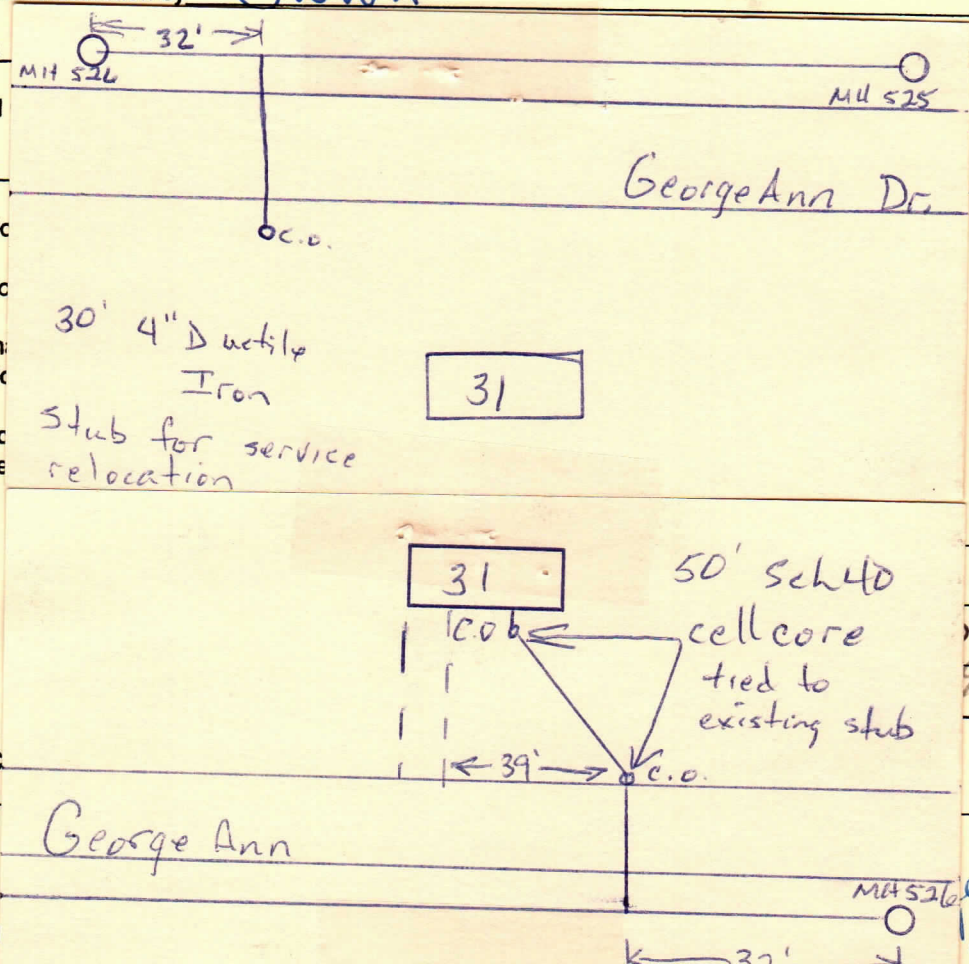 32'
MH 526
MH 525
GeorgeAnn Dr.
c.o.
30' 4" Ductile
Iron
Stub for service
relocation
31
31
50' Sch40
c.o
cellcore
tied to
existing stub
39'
c.o.
George Ann
MH526
32'